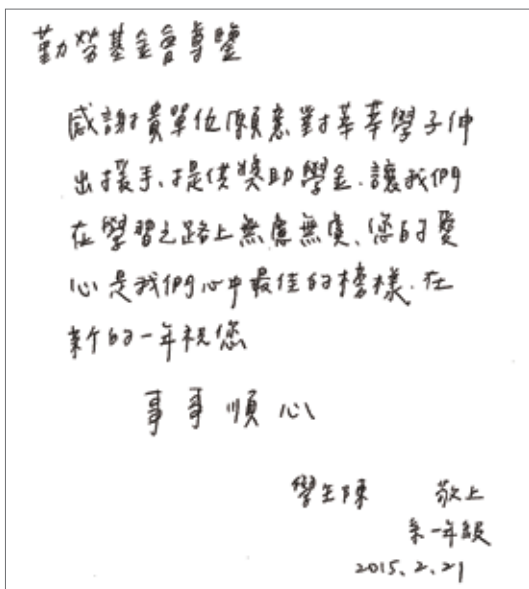 勤勞基金會尊鑒
感謝貴單位願意對莘莘學子伸
出援手、提供獎助學金、讓我們
在學習之路上無慮無虞、您的愛
心是我們心中最佳的榜樣、在
新的一年祝您
事事順心
學生陳 敬上
一年級
2015.2.21